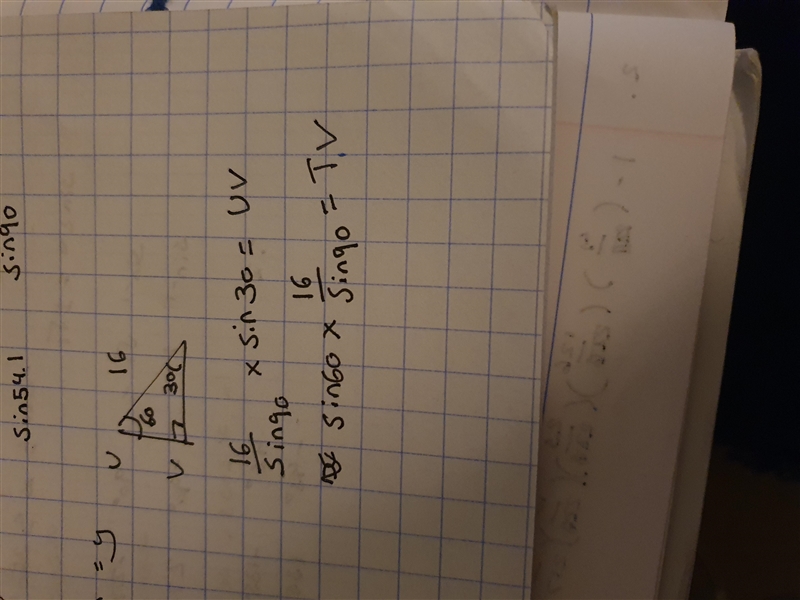 sin54.1 sin90
= y
U 16
60
V 30
16
sin90 × sin30 = UV
16
sin60 × sin90 = TV